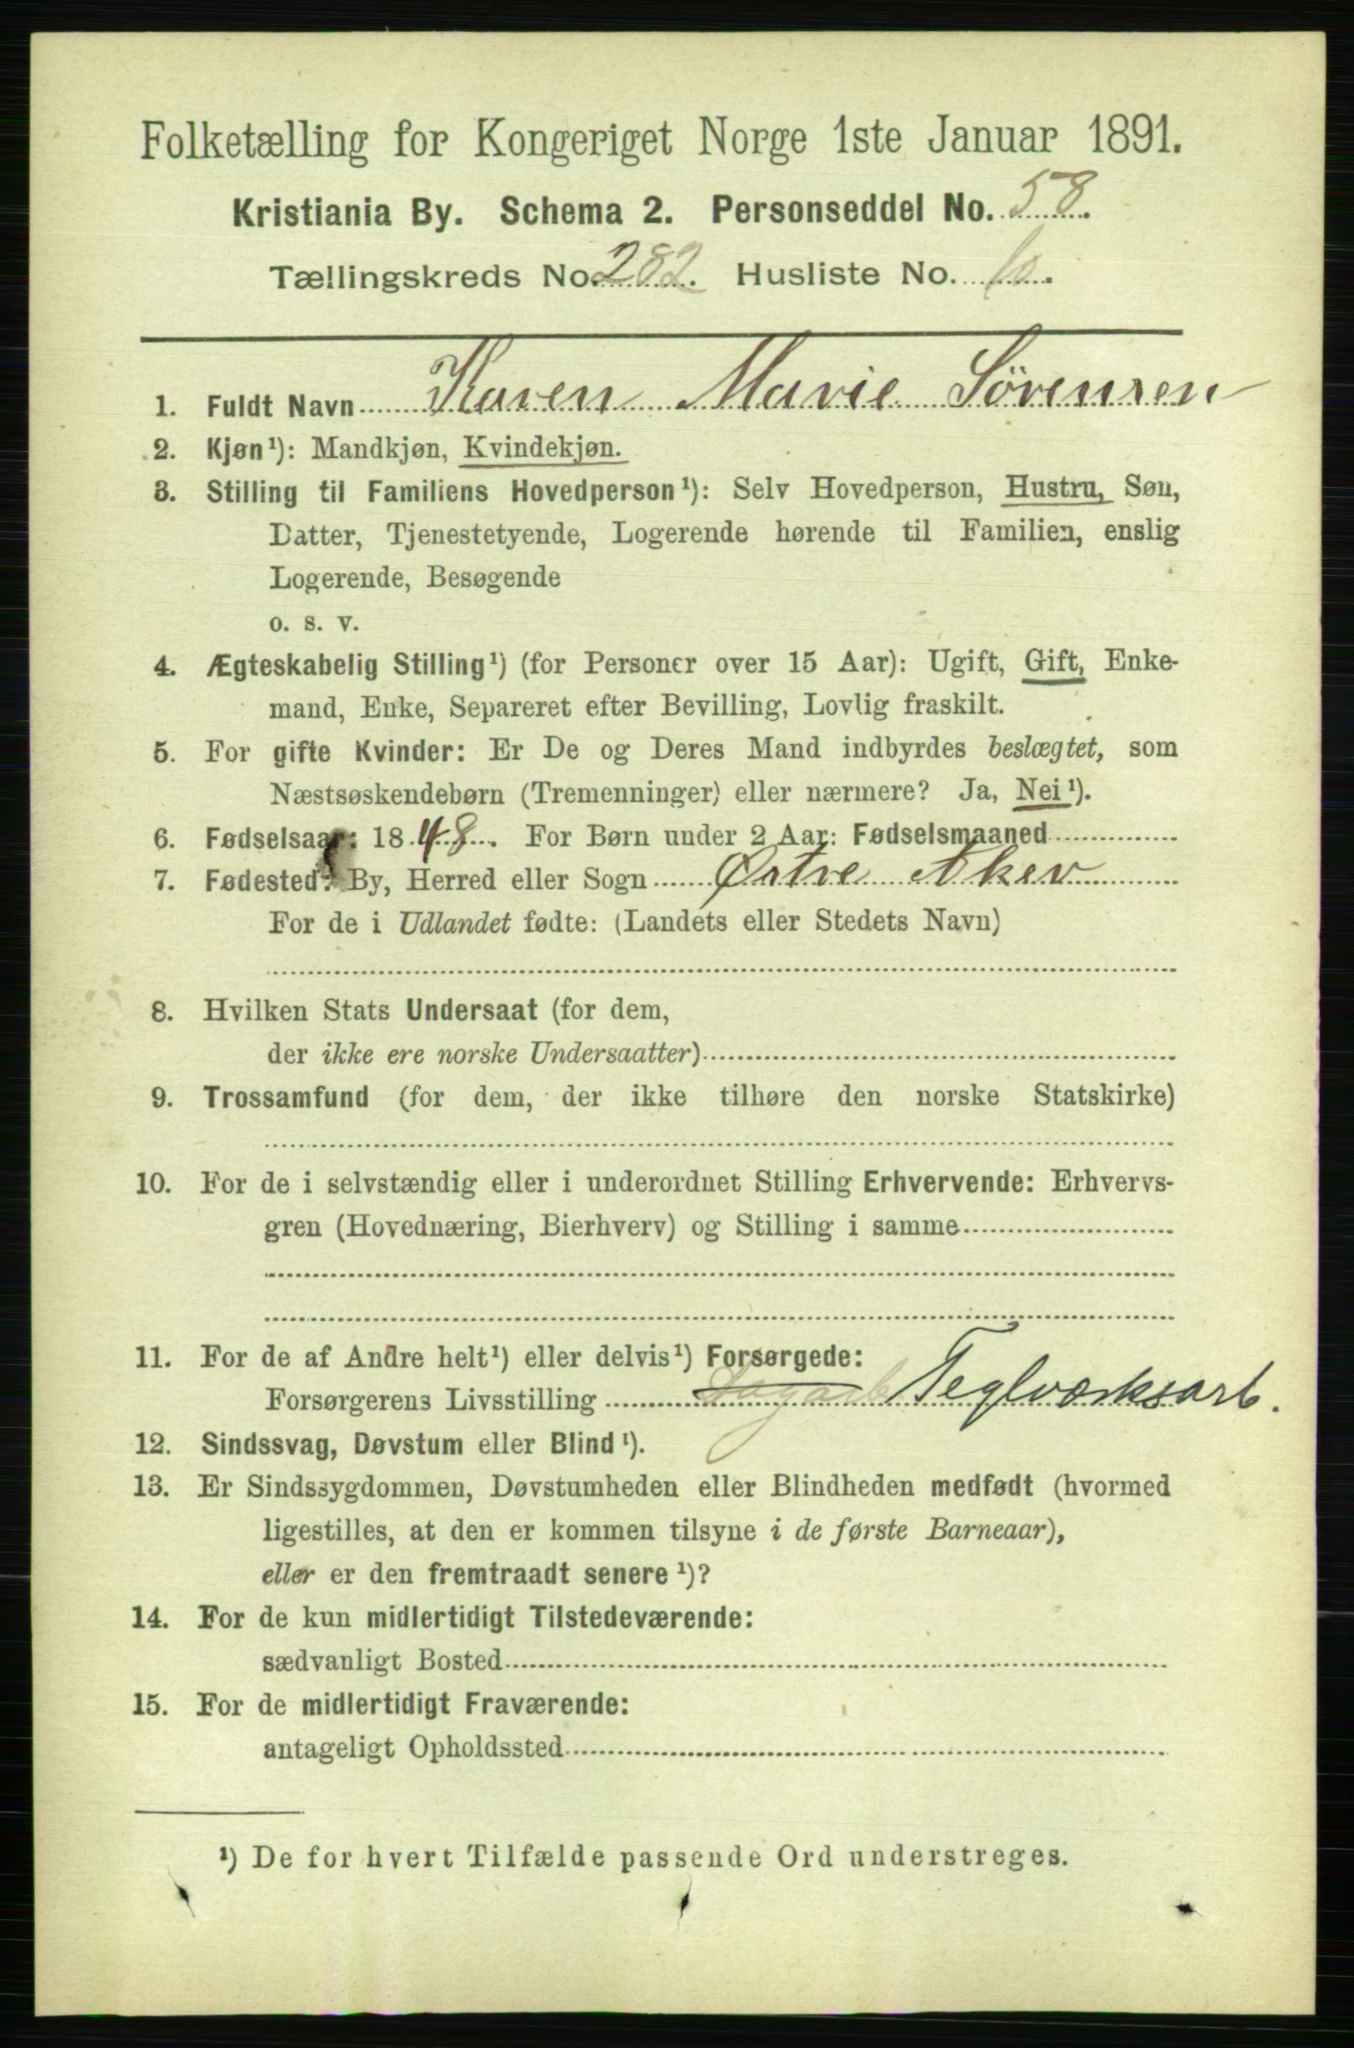 Folketælling for Kongeriget Norge 1ste Januar 1891.
Kristiania By. Schema 2. Personseddel No. 58.
Tællingskreds No. 282. Husliste No. 10.
1. Fuldt Navn Karen Marie Sörensen
2. Kjøn¹): Mandkjøn, Kvindekjøn.
3. Stilling til Familiens Hovedperson¹): Selv Hovedperson, Hustru, Søn,
Datter, Tjenestetyende, Logerende hørende til Familien, enslig
Logerende, Besøgende
o. s. v.
4. Ægteskabelig Stilling¹) (for Personer over 15 Aar): Ugift, Gift, Enke-
mand, Enke, Separeret efter Bevilling, Lovlig fraskilt.
5. For gifte Kvinder: Er De og Deres Mand indbyrdes beslægtet, som
Næstsøskendebørn (Tremenninger) eller nærmere? Ja, Nei¹).
6. Fødselsaar: 1848. For Børn under 2 Aar: Fødselsmaaned
7. Fødested: By, Herred eller Sogn Østre Aker
For de i Udlandet fødte: (Landets eller Stedets Navn)
8. Hvilken Stats Undersaat (for dem,
der ikke ere norske Undersaatter)
9. Trossamfund (for dem, der ikke tilhøre den norske Statskirke)
10. For de i selvstændig eller i underordnet Stilling Erhvervende: Erhvervs-
gren (Hovednæring, Bierhverv) og Stilling i samme
11. For de af Andre helt¹) eller delvis¹) Forsørgede:
Forsørgerens Livsstilling Dagarb Teglværksarb.
12. Sindssvag, Døvstum eller Blind¹).
13. Er Sindssygdommen, Døvstumheden eller Blindheden medfødt (hvormed
ligestilles, at den er kommen tilsyne i de første Barneaar),
eller er den fremtraadt senere¹)?
14. For de kun midlertidigt Tilstedeværende:
sædvanligt Bosted
15. For de midlertidigt Fraværende:
antageligt Opholdssted
¹) De for hvert Tilfælde passende Ord understreges.